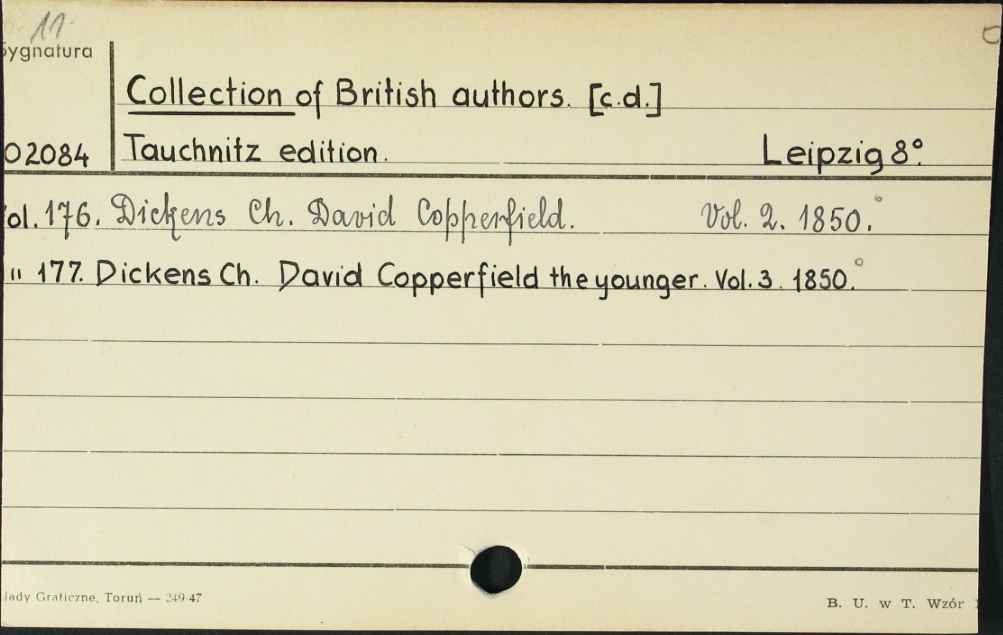 11.
Sygnatura
Collection of British authors. [c.d.]
02084
Tauchnitz edition. Leipzig 8°.
ol. 176. Dickens Ch. David Copperfield. Vol. 2. 1850.°
" 177. Dickens Ch. David Copperfield the younger. Vol. 3. 1850.°
łady Graficzne, Toruń — 249-47
B. U. w T. Wzór